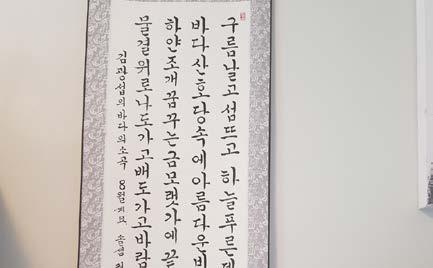 구름날고섬뜨고 하늘푸른데
바다산호당속에아름다운비
하얀조개꿈꾸는금모랫가에 끝
물결위로나도가고배도가고바람
김광섭의바다의소곡 8월